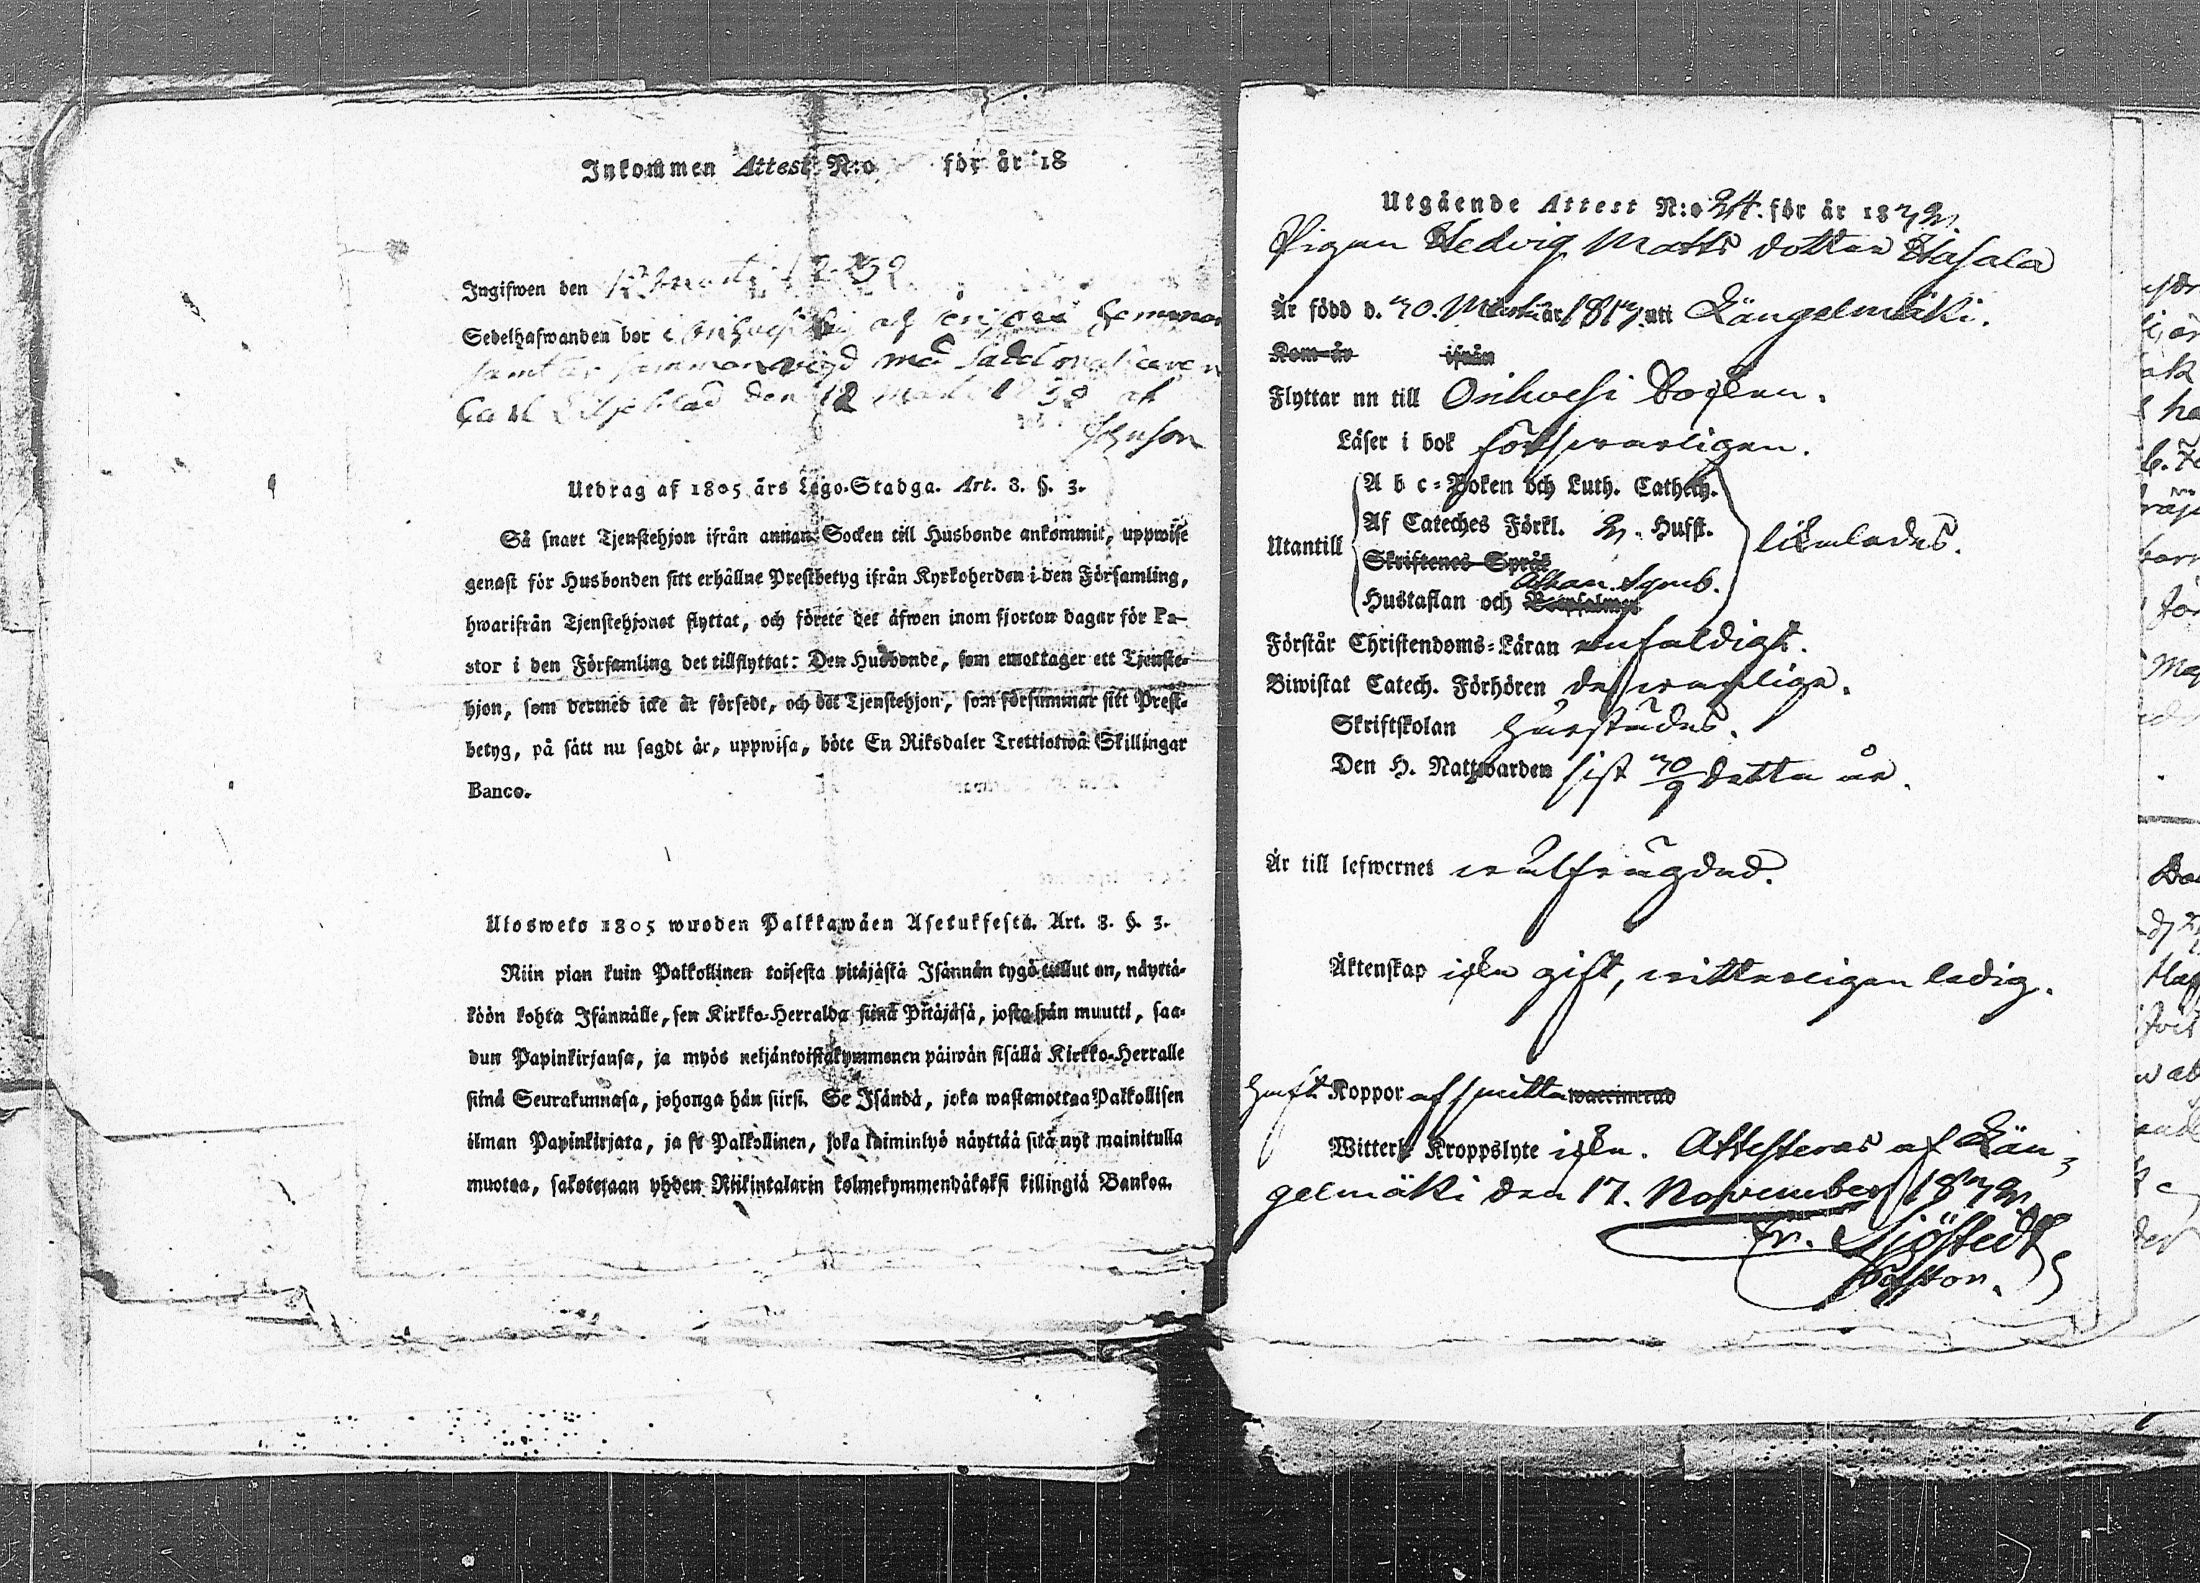 Inkommen Attest N:o för år 18
Ingifwen den 1832
Sedelhafwanden bor i och
med Sadelmakaren
Carl Liljeblad den 12 Martii 1838 af
Utdrag af 1805 års Lego-Stadga. Art. 8. §. 3.
Så snart Tjenstehjon ifrån annan Socken till Husbonde ankommit, uppwise
genast för Husbonden sitt erhållne Prestbetyg ifrån Kyrkoherden i den Församling,
hwarifrån Tjenstehjonet flyttat, och förete det äfwen inom fjorton dagar för Pa-
stor i den Församling det tillflyttat: Den Husbonde, som emottager ett Tjenste-
hjon, som dermed icke är försedt, och det Tjenstehjon, som försummar sitt Prest-
betyg, på sätt nu sagdt är, uppwisa, böte En Riksdaler Trettiotwå Skillingar
Banco.
Ulosweto 1805 wuoden Palkkawäen Asetuksesta. Art. 8. §. 3.
Niin pian kuin Palkollinen toisesta pitäjästä Isännän tygö tullut on, näyttä-
köön kohta Isännälle, sen Kirkko-Herralda siinä Pitäjäsä, josta hän muutti, saa-
dun Papinkirjansa, ja myös neljäntoistakymmenen päiwän sisällä Kirkko-Herralle
siinä Seurakunnasa, johonga hän siirsi. Se Isändä, joka wastanottaa Palkollisen
ilman Papinkirjata, ja se Palkollinen, joka laiminlyö näyttää sitä nyt mainitulla
muotoa, sakotetaan yhden Riikintalarin kolmekymmendäkaksi killingiä Bankoa.
Utgående Attest N:o 24. för år 1832.
Pigan Hedvig Matts dotter Hasala
Är född d. 30. Martii år 1813. uti Längelmäki.
Kom år ifrån
Flyttar nu till Orihvesi Socken.
Läser i bok försvarligen.
Utantill
A b c-Boken och Luth. Cathech.
Af Cateches Förkl. 2. Hufst.
Skriftenes Språk
Athan. Symb.
Hustaflan och
likaledes.
Förstår Christendoms-Läran enfaldigt.
Biwistat Catech. Förhören
Skriftskolan
Den H. Nattwarden sist 30/9 detta år.
Är till lefwernet wälfrägdad.
Äktenskap icke gift, witterligen ledig.
Haft Koppor af smitta waccinerad
Witterl. Kroppslyte icke. Attesteras af Län-
gelmäki den 17. November 1832.
Fr. Sjöstedt
Pastor.